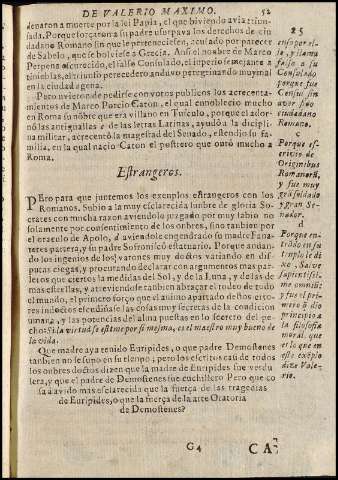 DE VALERIO MAXIMO. 52
denaron a muerte por la lei Papia, el que biviendo avia triun-
fado. Porque forçaron a su padre usurpava los derechos de ciu
dadano Romano sin que le perteneciesen, acusado por parte
de Sabelo, que se bolviese a Grecia. Ansi el nombre de Marco
Perpena escurecido, el falso Consulado, el imperio semejante a
tinieblas, el triunfo perecedero anduvo peregrinando muy mal
en la ciudad agena.
Pero uvieron de pedirse con votos publicos los acrecenta-
mientos de Marco Porcio Caton, el qual ennoblecio mucho
en Roma su nõbre que era villano en Tusculo, porque el ador-
nò las antiguallas de las letras Latinas, ayudò a la dicipli
na militar, acrecentò la magestad del Senado, estendio su fa-
milia, en la qual nacio Caton el postrero que onrò mucho a
Roma.
Estrangeros.
PEro para que juntemos los exemplos estrangeros con los
Romanos. Subio a la muy esclarecida lumbre de gloria So-
crates con mucha razon aviendolo juzgado por muy sabio no
solamente por consentimiento de los onbres, sino tanbien por
el oraculo de Apolo, aviendole engendrado su madre Fana
retes partera, y su padre Sofronisco estatuario. Porque andan-
do los ingenios de los varones muy doctos variando en dis-
putas ciegas, y procurando declarar con argumentos mas par-
leros que ciertos la medidas del Sol, y de la Luna, y de las de
mas estrellas, y atreviendose tanbien abraçar el rodeo de todo
el mundo, el primero forçò que el animo apartado destos erro-
res indoctos escudriñase las cosas muy secretas de la condicion
umana, y las potencias del alma puestas en lo secreto del pe-
cho: Si la virtud se estime por si mesma, es el maestro muy bueno de
la vida.
Que madre aya tenido Euripides, o que padre Demostenes
tanbien no se supo en su tienpo; pero los escritos casi de todos
los onbres doctos dizen que la madre de Euripides fue verdu
lera, y que el padre de Demostenes fue cuchillero. Pero que co
sa a avido mas esclarecida que la fuerça de las tragedias
de Euripides, o que la fuerça de la arte Oratoria
de Demostenes?
G4 CA
c
Porque es-
d
Porque en-